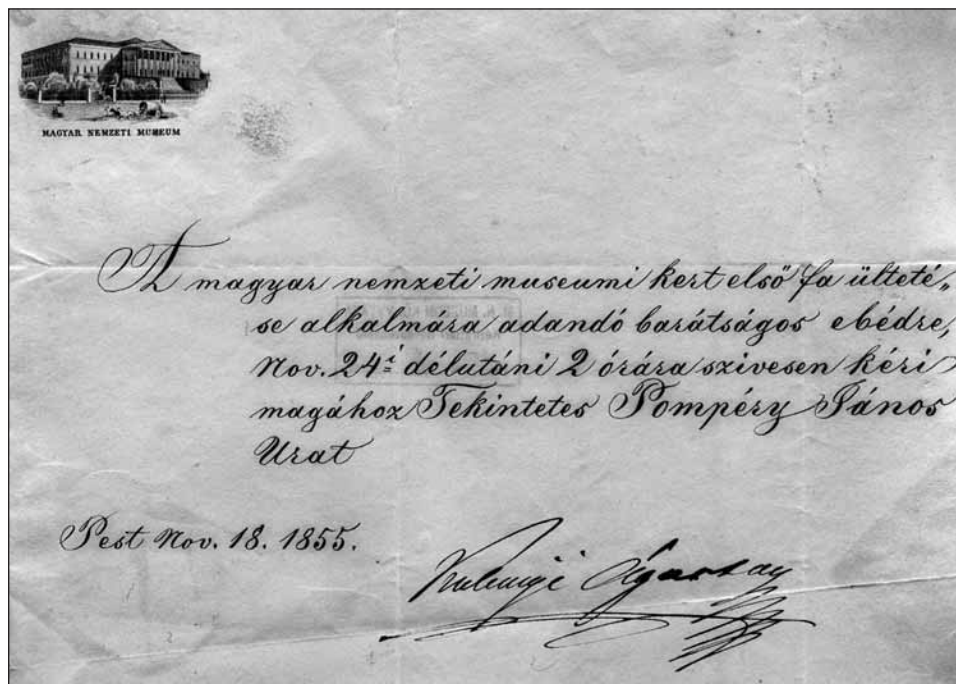 MAGYAR NEMZETI MUSEUM
A magyar nemzeti museumi kert első fa ülteté„
se alkalmára adandó barátságos ebédre,
Nov. 24i délutáni 2 órára szivesen kéri
magához Tekintetes Pompéry János
Urat
Pest Nov. 18. 1855.
Kubinyi Ágoston